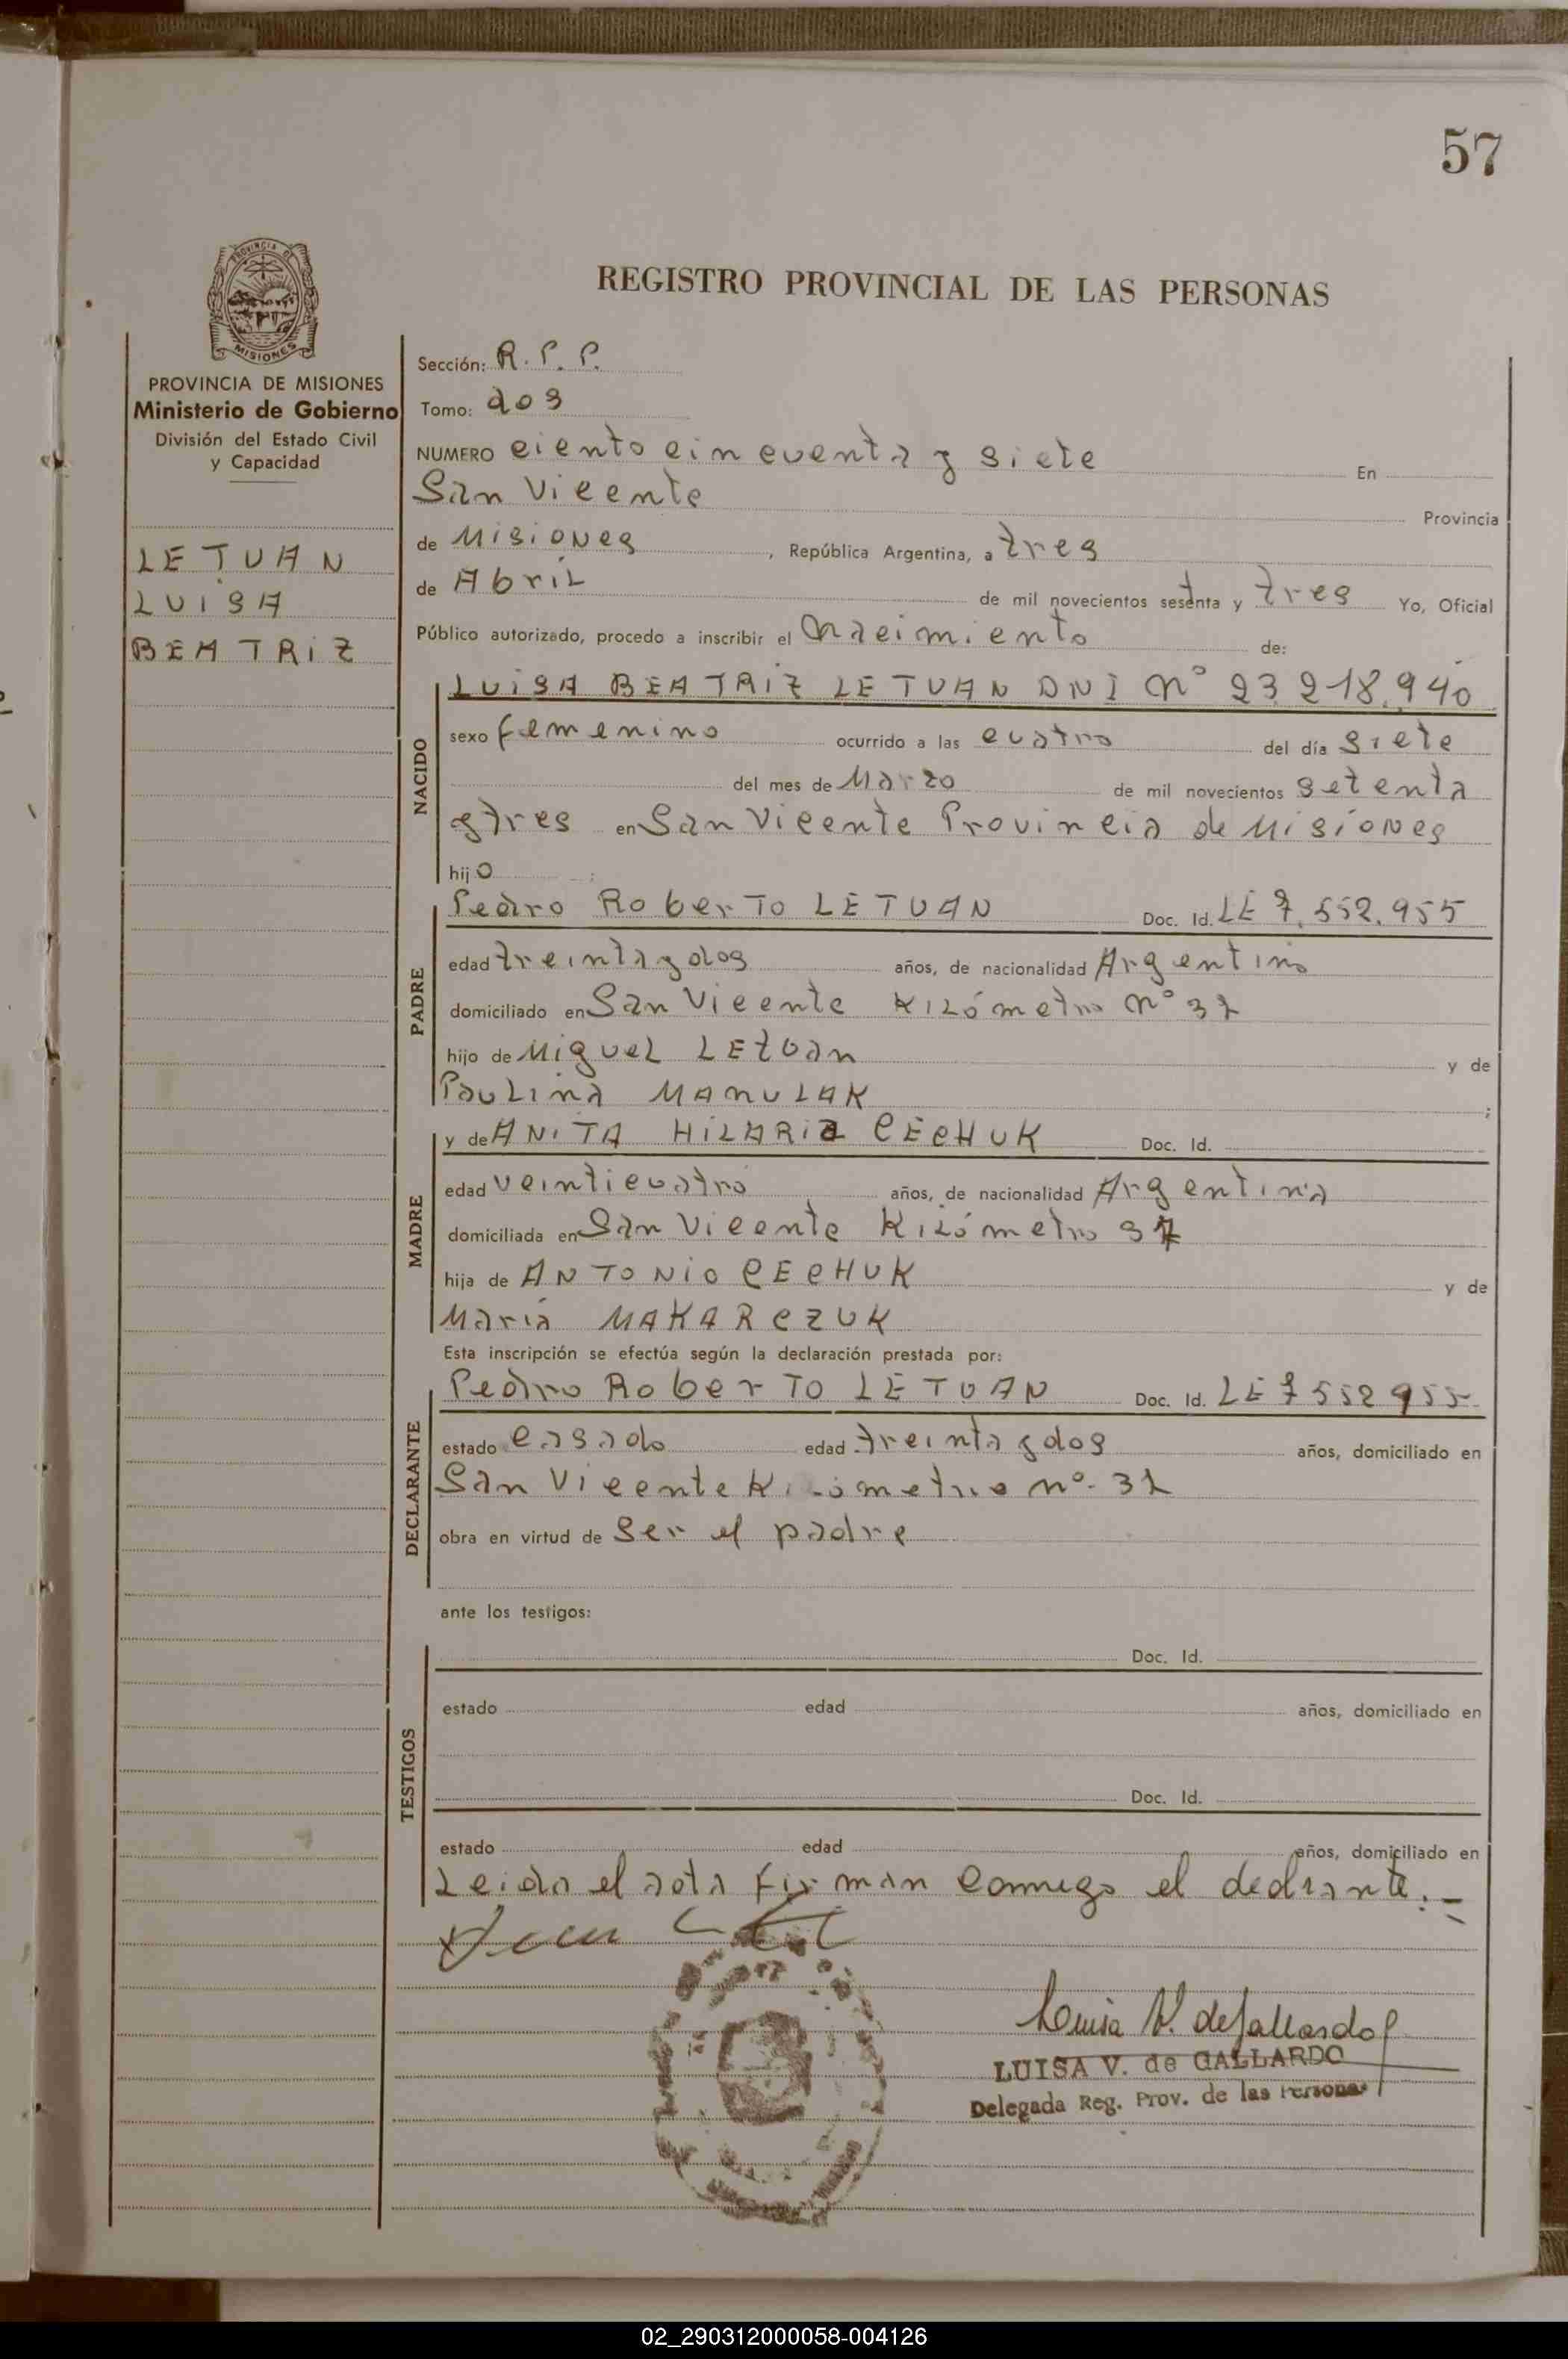 57
PROVINCIA DE
MISIONES
PROVINCIA DE MISIONES
Ministerio de Gobierno
División del Estado Civil
y Capacidad
LETUAN
LUISA
BEATRIZ
REGISTRO PROVINCIAL DE LAS PERSONAS
Sección: R. P. P.
Tomo: dos
NUMERO ciento cincuenta y siete En
San Vicente Provincia
de Misiones, República Argentina, a tres
de Abril de mil novecientos setenta y tres Yo, Oficial
Público autorizado, procedo a inscribir el Nacimiento de:
NACIDO
LUISA BEATRIZ LETUAN DNI Nº 23.218.940
sexo femenino ocurrido a las cuatro del día siete
del mes de Marzo de mil novecientos setenta
y tres en San Vicente Provincia de Misiones
hijo :
PADRE
Pedro Roberto LETUAN Doc. Id. LE 7.552.955
edad treinta y dos años, de nacionalidad Argentino
domiciliado en San Vicente Kilómetro nº
hijo de Miguel LETUAN y de
Paulina MANULAK ;
MADRE
y de ANITA HILARIA CECHUK Doc. Id.
edad veinticuatro años, de nacionalidad Argentina
domiciliada en San Vicente Kilómetro 37
hija de ANTONIO CECHUK y de
María MAKARCZUK
Esta inscripción se efectúa según la declaración prestada por:
DECLARANTE
Pedro Roberto LETUAN Doc. Id. LE 7552955
estado casado edad treinta y dos años, domiciliado en
San Vicente Kilómetro nº
obra en virtud de Ser el padre
ante los testigos:
TESTIGOS
Doc. Id.
estado edad años, domiciliado en
Doc. Id.
estado edad años, domiciliado en
Leida el acta firman conmigo el declrante.-
Luisa V. de Gallardo
LUISA V. de GALLARDO
Delegada Reg. Prov. de las Personas
02_290312000058-004126